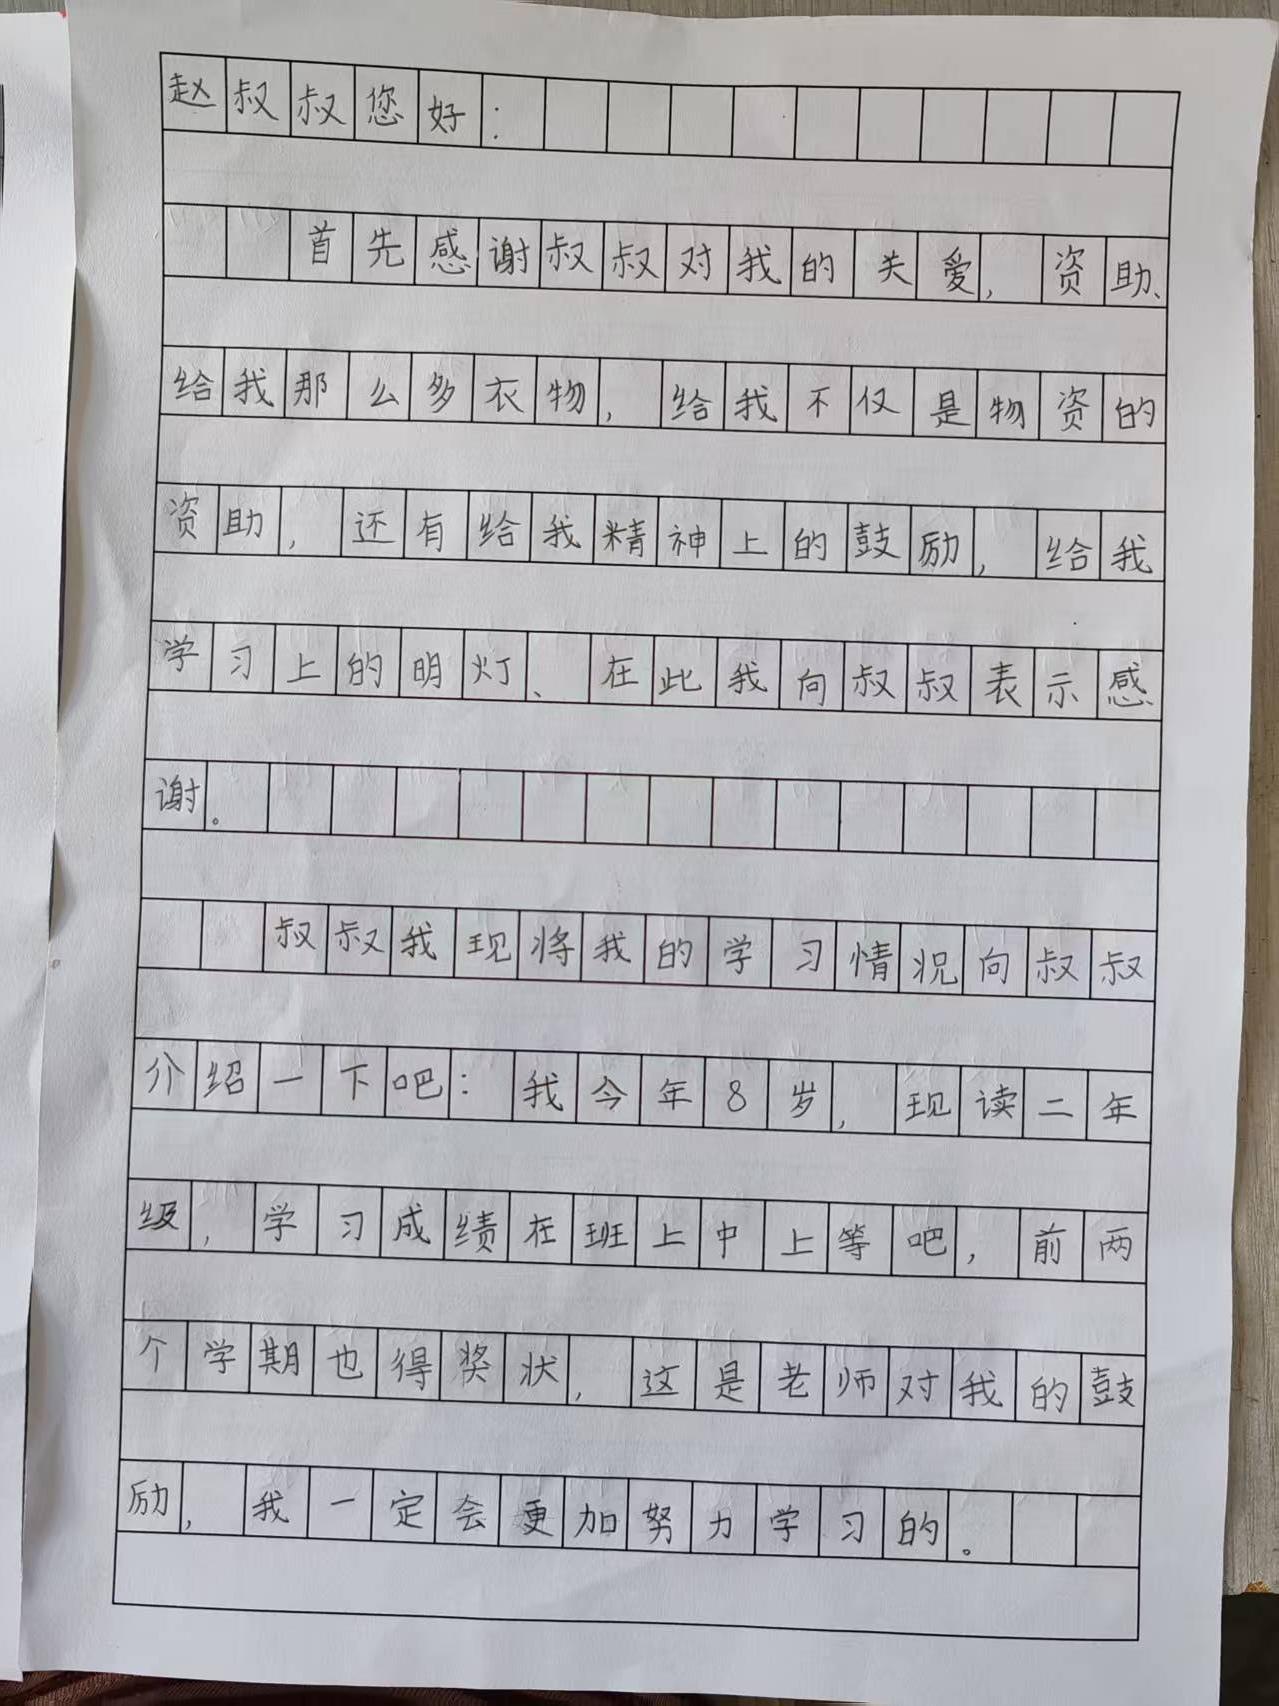 赵叔叔您好：
首先感谢叔叔对我的关爱，资助、
给我那么多衣物，给我不仅是物资的
资助，还有给我精神上的鼓励，给我
学习上的明灯、在此我向叔叔表示感
谢。
叔叔我现将我的学习情况向叔叔
介绍一下吧：我今年8岁，现读二年
级，学习成绩在班上中上等吧，前两
个学期也得奖状，这是老师对我的鼓
励，我一定会更加努力学习的。